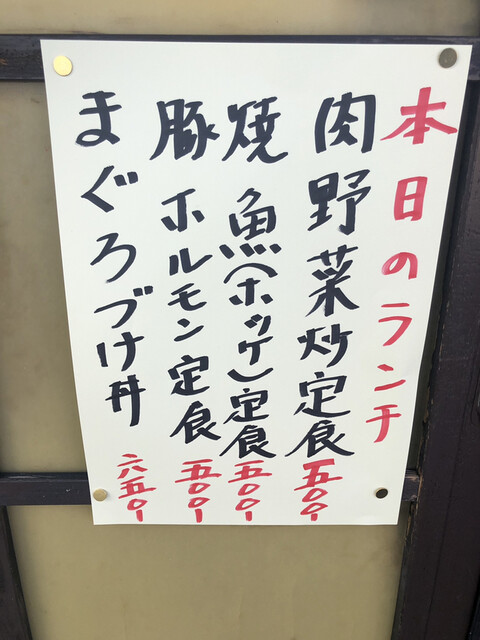 本日のランチ
肉野菜炒定食 五〇〇-
焼魚(ホッケ)定食 五〇〇-
豚ホルモン定食 五〇〇-
まぐろづけ丼 六五〇-